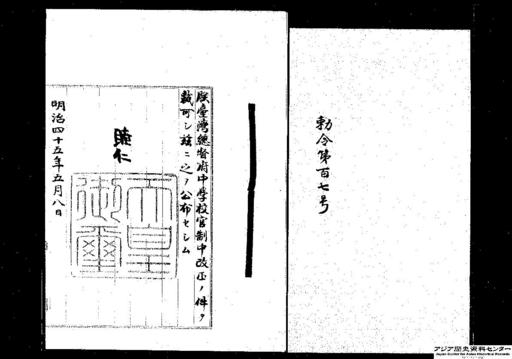 勅令第百七号
朕臺灣總督府中學校官制中改正ノ件ヲ
裁可シ玆ニ之ヲ公布セシム
睦仁
天皇
御璽
明治四十五年五月八日
アジア歴史資料センター
Japan Center for Asian Historical Records